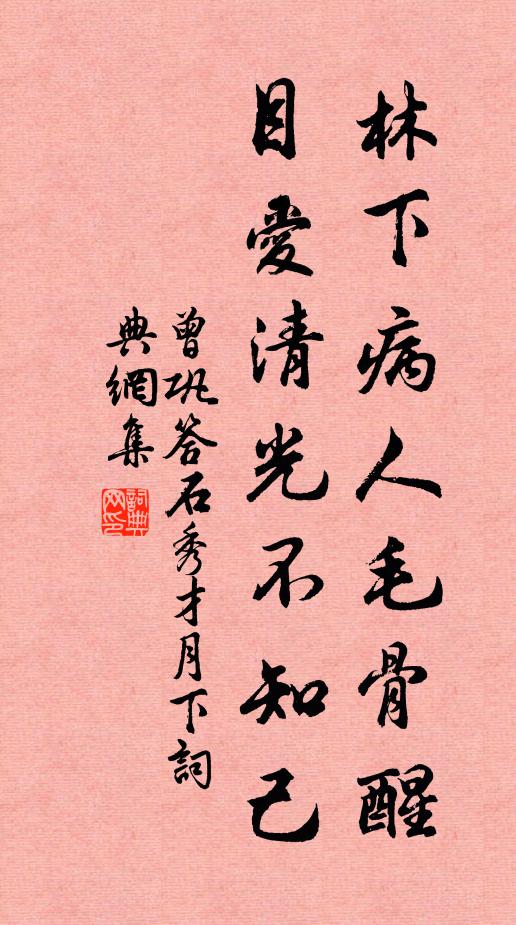 林下病人毛骨醒
目愛清光不知已
曾巩答石秀才月下詞
典網集
詞典網印